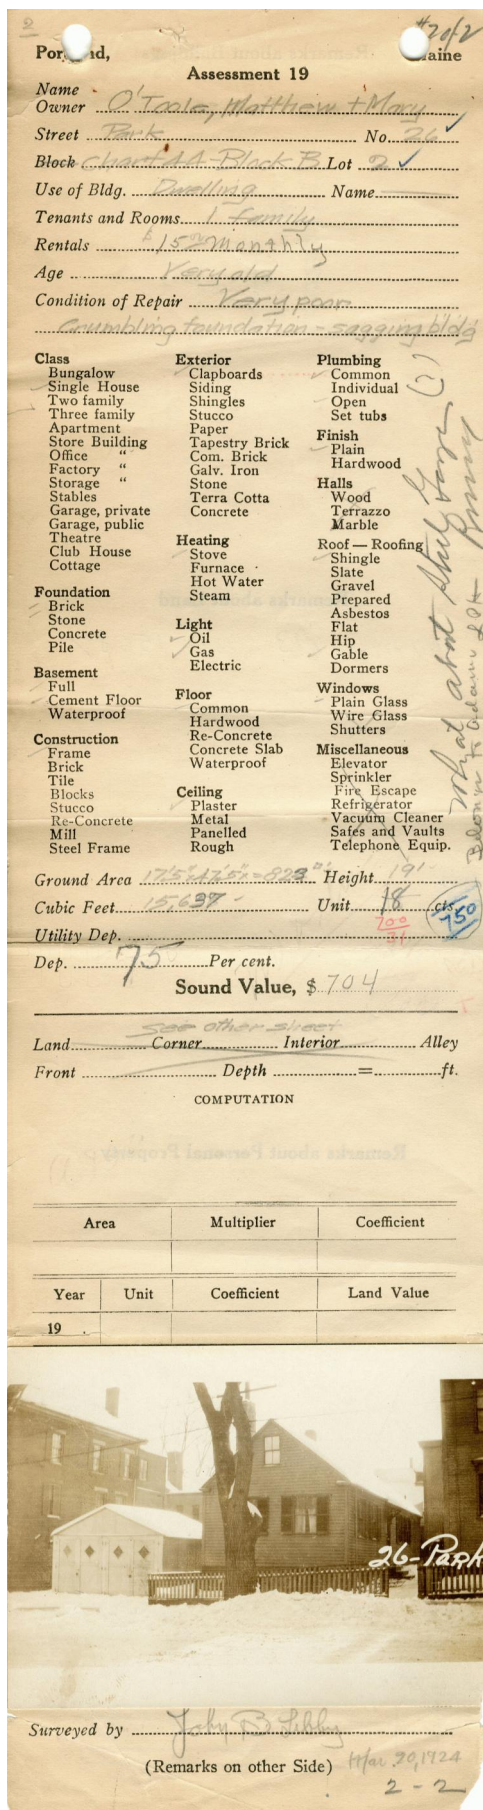 2 #2 of 2
Portland, Maine
Assessment 19
Name
Owner O'Toole, Matthew + Mary
Street Park No. 26
Block Chart 44 - Block B Lot 2
Use of Bldg. Dwelling Name
Tenants and Rooms 1 family
Rentals $15.00 monthly
Age Very old
Condition of Repair Very poor
Crumbling foundation - sagging bldg
Class
Bungalow
Single House
Two family
Three family
Apartment
Store Building
Office "
Factory "
Storage "
Stables
Garage, private
Garage, public
Theatre
Club House
Cottage
Foundation
Brick
Stone
Concrete
Pile
Basement
Full
Cement Floor
Waterproof
Construction
Frame
Brick
Tile
Blocks
Stucco
Re-Concrete
Mill
Steel Frame
Exterior
Clapboards
Siding
Shingles
Stucco
Paper
Tapestry Brick
Com. Brick
Galv. Iron
Stone
Terra Cotta
Concrete
Heating
Stove
Furnace
Hot Water
Steam
Light
Oil
Gas
Electric
Floor
Common
Hardwood
Re-Concrete
Concrete Slab
Waterproof
Ceiling
Plaster
Metal
Panelled
Rough
Plumbing
Common
Individual
Open
Set tubs
Finish
Plain
Hardwood
Halls
Wood
Terrazzo
Marble
Roof — Roofing
Shingle
Slate
Gravel
Prepared
Asbestos
Flat
Hip
Gable
Dormers
Windows
Plain Glass
Wire Glass
Shutters
Miscellaneous
Elevator
Sprinkler
Fire Escape
Refrigerator
Vacuum Cleaner
Safes and Vaults
Telephone Equip.
What about Steel Garage (?)
Belongs to
Ground Area 17'.5" x 47'.5" = 823 □' Height 19'
Cubic Feet 15,637 Unit 18 cts.
750
700
31
Utility Dep.
Dep. 75 Per cent.
Sound Value, $ 704
see other sheet
Land Corner Interior Alley
Front Depth = ft.
COMPUTATION
Remarks about Personal Property
Area Multiplier Coefficient
Year Unit Coefficient Land Value
19 .
26-Park
Surveyed by John B Libby
(Remarks on other Side) Mar. 20, 1924
2 - 2